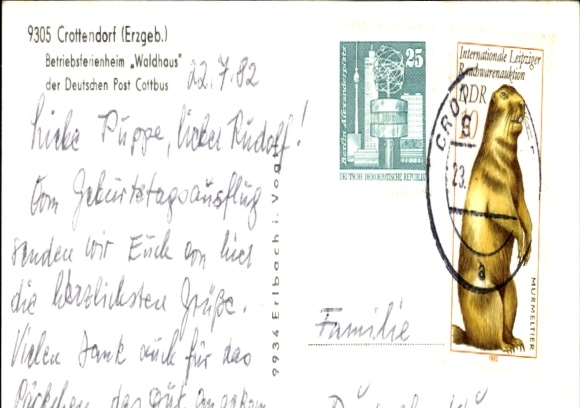 9305 Crottendorf (Erzgeb.)
Betriebsferienheim „Waldhaus"
der Deutschen Post Cottbus
22.7.82
Liebe Puppe, lieber Rudolf!
Vom Geburtstagsausflug
senden wir Euch von hier
die herzlichsten Grüße.
Vielen Dank auch für das
Päckchen, das gut
9934 Erlbach i. Vogt
Berlin, Alexanderplatz
25
DEUTSCHE DEMOKRATISCHE REPUBLIK
Internationale Leipziger
Rauchwarenauktion
DDR
10
MURMELTIER
1982
CRO
23.
a
Familie